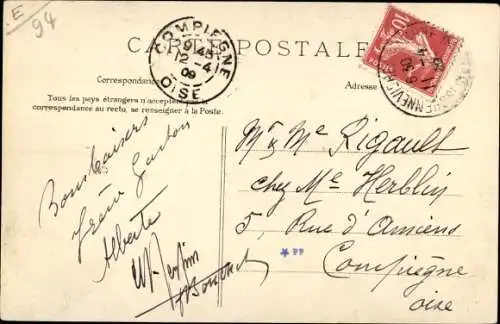 E
94
CARTE POSTALE
Correspondance
Adresse
Tous les pays étrangers n'acceptent pas la
correspondance au recto, se renseigner à la Poste.
COMPIEGNE
9 45
12-4
09
OISE
10
Mr & Me Rigault
chez Me Herblin
5, Rue d'Amiens
Compiegne
oise
Bons baisers
Gaston
Alberte
*PP